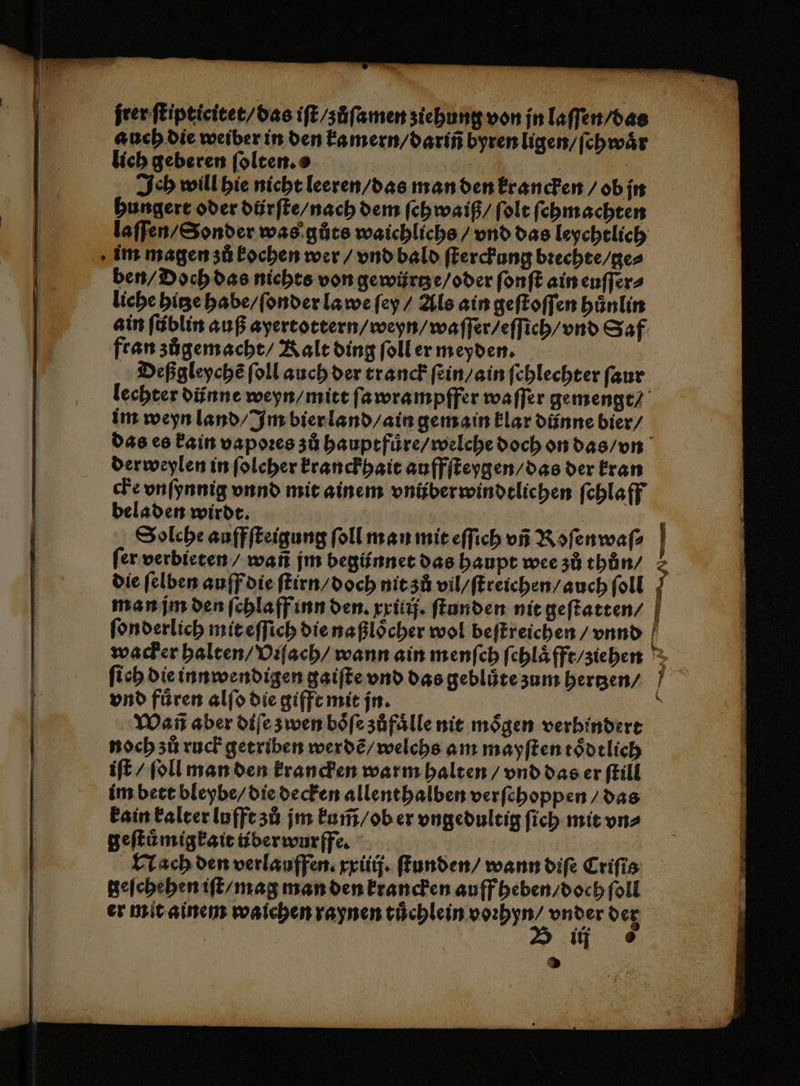 jrer ſtipticitet/das iſt/zůſamen ziehung von jn laſſen/das
auch die weiber in den kamern/dariñ byren ligen/ſchwaͤr
lich geberen ſolten.
Ich will hie nicht leeren/das man den krancken / ob jn
hungert oder dürſte/nach dem ſchwaiß/ ſolt ſchmachten
laſſen/Sonder was gůts waichlichs / vnd das leychtlich
im magen zů kochen wer / vnd bald ſterckung bꝛechte/ge⸗
ben/Doch das nichts von gewürtze/oder ſonſt ain euſſer⸗
liche hitze habe/ſonder lawe ſey / Als ain geſtoſſen hůnlin
ain ſüblin auß ayertottern/weyn/waſſer/eſſich/vnd Saf
fran zůgemacht/ Kalt ding ſoll er meyden.
Deßgleychē ſoll auch der tranck ſein/ain ſchlechter ſaur
lechter dünne weyn/mitt ſawrampffer waſſer gemengt/
im weyn land/Im bier land/ain gemain klar dünne bier/
das es kain vapoꝛes zů hauptfuͤre/welche doch on das/vn
derweylen in ſolcher kranckhait auffſteygen/das der kran
cke vnſynnig vnnd mit ainem vnüberwindtlichen ſchlaff
beladen wirdt.
Solche auffſteigung ſoll man mit eſſich vñ Roſenwaſ⸗
ſer verbieten / wañ jm begünnet das haupt wee zů thůn/
die ſelben auff die ſtirn/doch nit zů vil/ſtreichen/auch ſoll
man jm den ſchlaff inn den. xxiiij. ſtunden nit geſtatten/
ſonderlich mit eſſich die naßloͤcher wol beſtreichen / vnnd
wacker halten/Vꝛſach/ wann ain menſch ſchlaͤfft/ziehen
ſich die innwendigen gaiſte vnd das gebluͤte zum hertzen/
vnd fuͤren alſo die gifft mit jn.
Wañ aber diſe zwen boͤſe zůfaͤlle nit moͤgen verhindert
noch zů ruck getriben werdē/welchs am mayſten toͤdtlich
iſt / ſoll man den krancken warm halten / vnd das er ſtill
im bett bleybe/die decken allenthalben verſchoppen / das
kain kalter lufft zů jm kum̃/ob er vngedultig ſich mit vn⸗
geſtuͤmigkait überwurffe.
Nach den verlauffen. xxiiij. ſtunden/ wann diſe Criſis
geſchehen iſt/mag man den krancken auff heben/doch ſoll
er mit ainem waichen raynen tuͤchlein voꝛhyn/ vnder der
B iij